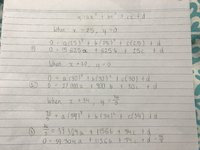 y = ax³ + bx² + cx + d
When x = 25, y = 0
0 = a(25)³ + b(25)² + c(25) + d
① 0 = 15 625a + 625b + 25c + d
When x = 30, y = 0
0 = a(30)³ + b(30)² + c(30) + d
② 0 = 27 000a + 900b + 30c + d
When x = 34, y =
= a(34)³ + b(34)² + c(34) + d
③ = 39 304a + 1156b + 34c + d
0 = 39 304a + 1156b + 34c + d -